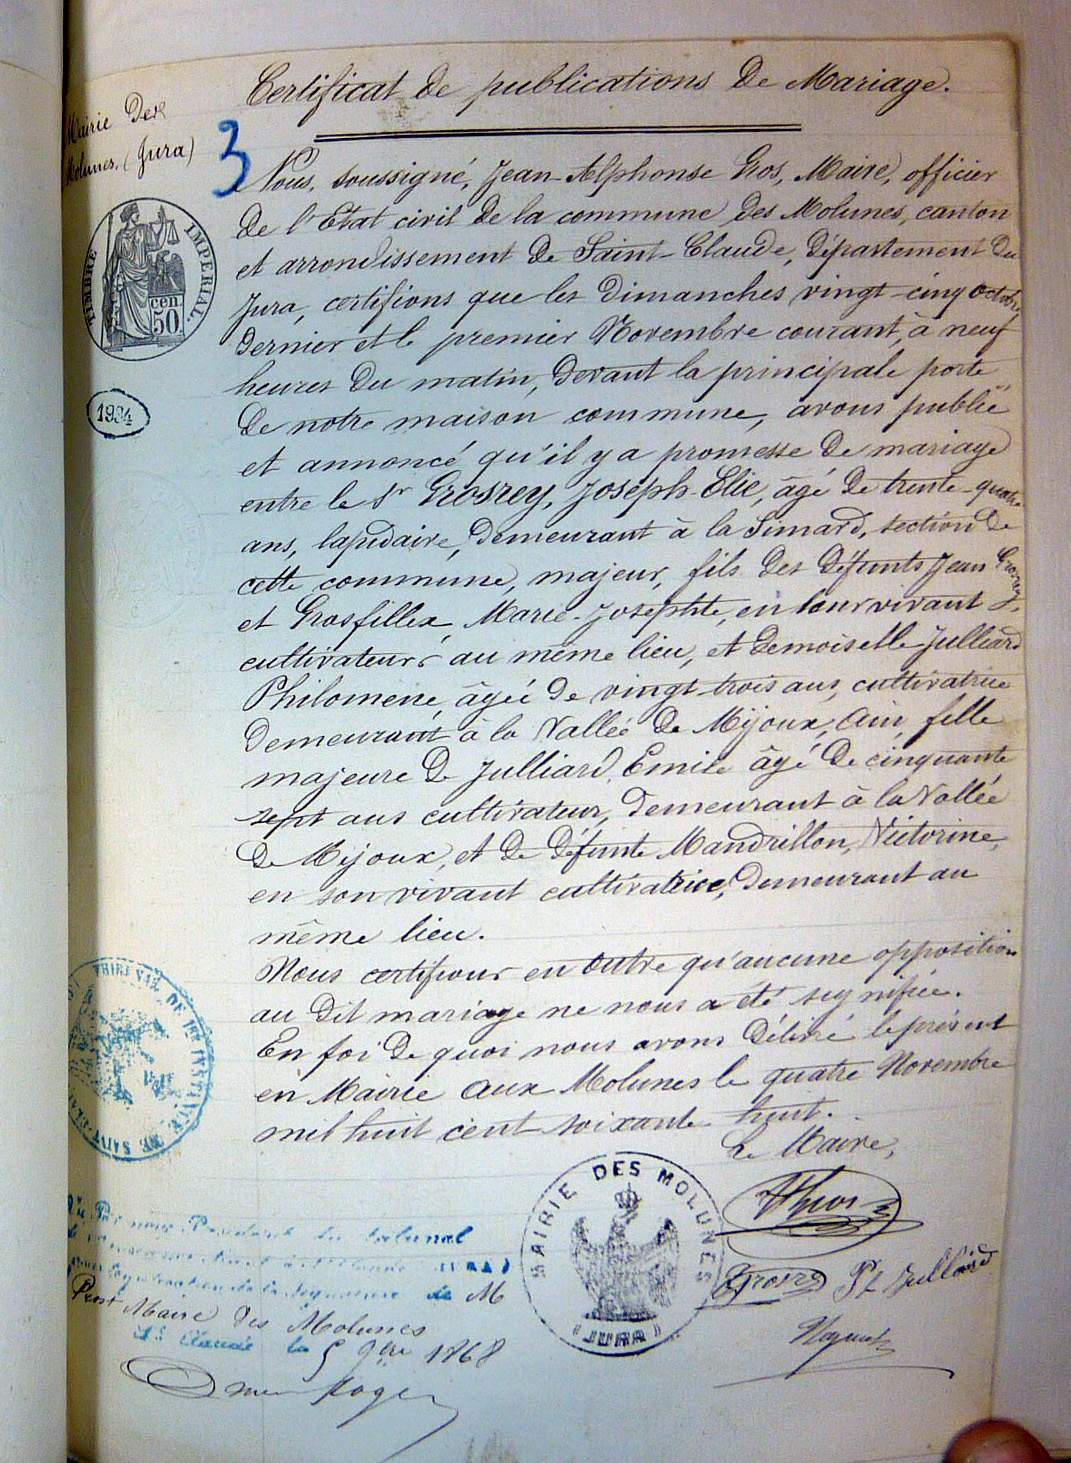 Certificat de publications de Mariage.
Mairie Des
Molunes. (Jura)
3
TIMBRE IMPERIAL
50 cen
1934
Nous, soussigné, Jean-Alphonse Gros, Maire, officier
de l'Etat civil de la commune des Molunes, canton
et arrondissement de Saint-Claude, Département du
Jura, certifions que les dimanches vingt-cinq octobre
dernier et le premier Novembre courant, à neuf
heures du matin, devant la principale porte
de notre maison commune, avons publié
et annoncé qu'il y a promesse de mariage
entre le Sr Grosrey, Joseph-Elie, âgé de trente-quatre
ans, lapidaire, demeurant à la Simard, section de
cette commune, majeur, fils des défunts Jean Grosrey
et Grosfillex, Marie-Josephte, en leur vivant
cultivateurs au même lieu, et demoiselle Julliard
Philomène, âgée de vingt-trois ans, cultivatrice
demeurant à la Vallée de Mijoux, Ain, fille
majeure de Julliard, Emile âgé de cinquante
sept ans cultivateur, demeurant à la Vallée
de Mijoux, et de défunte Mandrillon, Victorine,
en son vivant cultivatrice, demeurant au
même lieu.
Nous certifions en outre qu'aucune opposition
au dit mariage ne nous a été signifiée.
En foi de quoi nous avons délivré le présent
en Mairie aux Molunes le quatre Novembre
mil huit cent soixante-huit.
Le Maire,
MAIRIE DES MOLUNES
(JURA)
Grosrey Ph Julliard
Vu Par nous Président du tribunal
de la signature de M
Maire des Molunes
St Claude le 5 9bre 1868